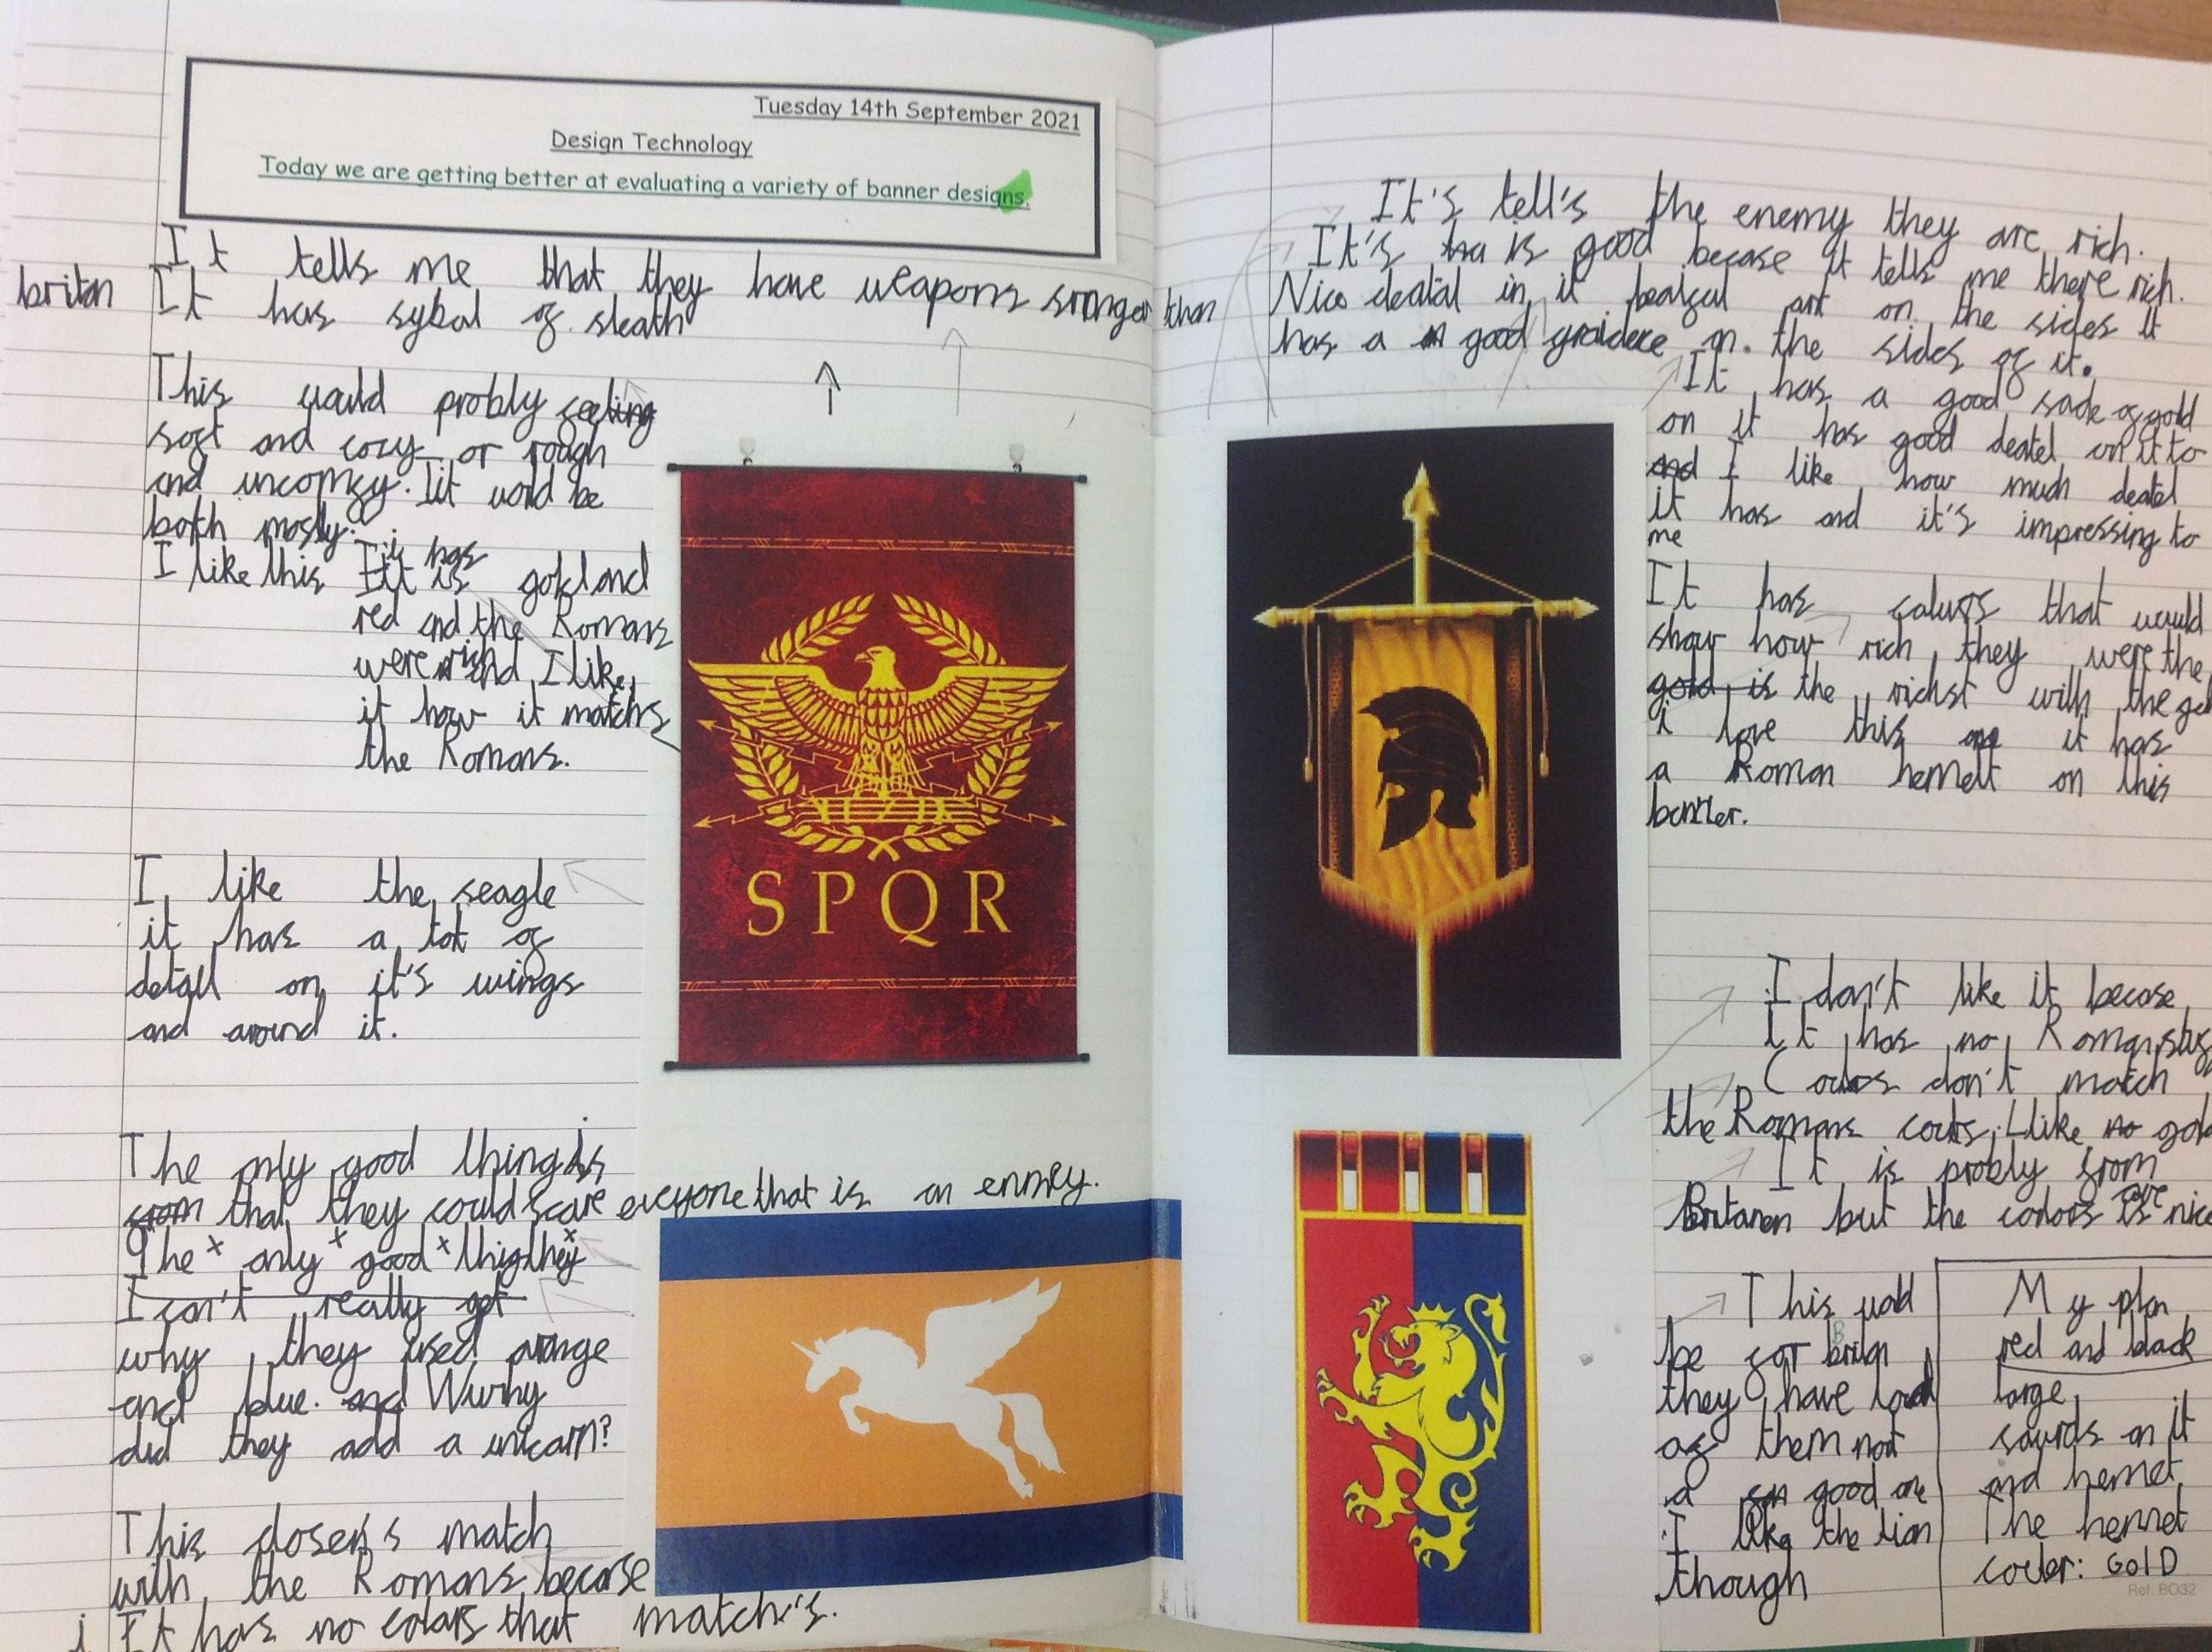 Tuesday 14th September 2021
Design Technology
Today we are getting better at evaluating a variety of banner designs.
It tells me that they have weapons sronger than
briton
It has sybal of sleath
This would probly feeling
soft and cozy or rough
and uncomfy. Iit wold be
both mostly.
I like this it has gold and
red and the Romans
were rich and I like
it how it matchs
the Romans.
I like the seagle
it has a lot of
detall on it's wings
and around it.
The only good thing is
from that they could scare everyone that is an enmey.
The only good thig they
I can't really get
why they used orange
and blue. and Wwhy
did they add a unicarn?
This dosen's match
with the Romans becarse
It has no colars that match's.
SPQR
It's tell's the enemy they are rich.
It's ha is good becase it tells me there rich.
Nice deatal in it beaigul art on the sides it
has a good graidece on the sides of it.
It has a good sade of gold
on it has good deatel on it to
and I like how much deatel
it has and it's impressing to
me
It has calurs that would
show how rich they were the
gold is the richst with the
i love this one it has
a Roman hemelt on this
banner.
I don't like it becase
It has no Roman
Colors don't match
the Romans like no gold
It is probly from
Britanen but the colors are is nice
This wold
be for Briton
they have load
of them not
a good one
I like the lion
though
My plan
red and black
large
sourds on it
and hemet
The hemet
couler: GolD
Ref: BO32